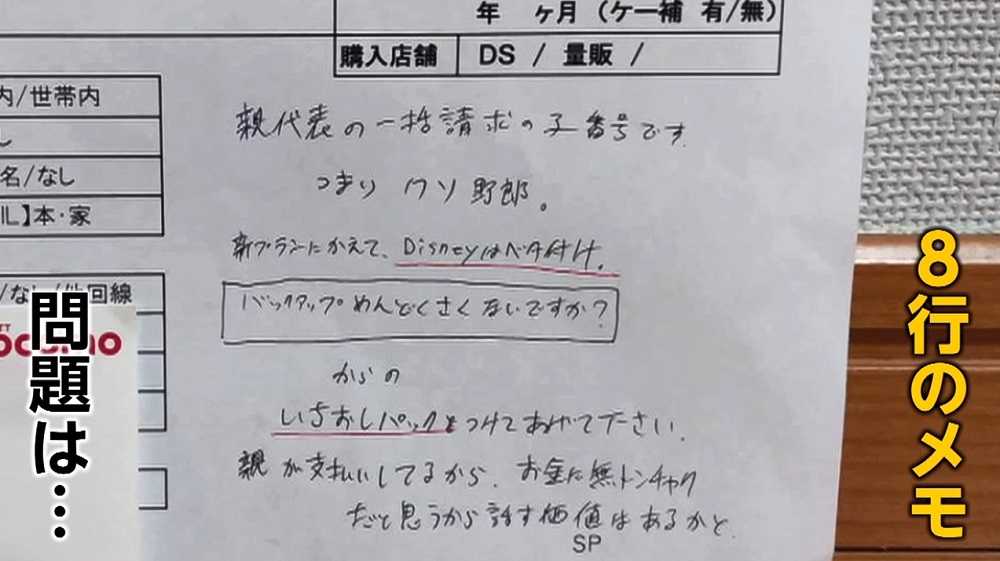 年 ヶ月（ケー補 有/無）
購入店舗 DS / 量販 /
内/世帯内
名/なし
IL】本・家
なし/他回線
親代表の一括請求の子番号です
つまり クソ野郎。
新プランにかえて、Disneyはベタ付け。
バックアップめんどくさくないですか?
からの
いちおしパックをつけてあげて下さい。
親が支払いしてるから、お金に無トンチャク
だと思うから話す価値はあるかと
SP
docomo
問題は…
8行のメモ